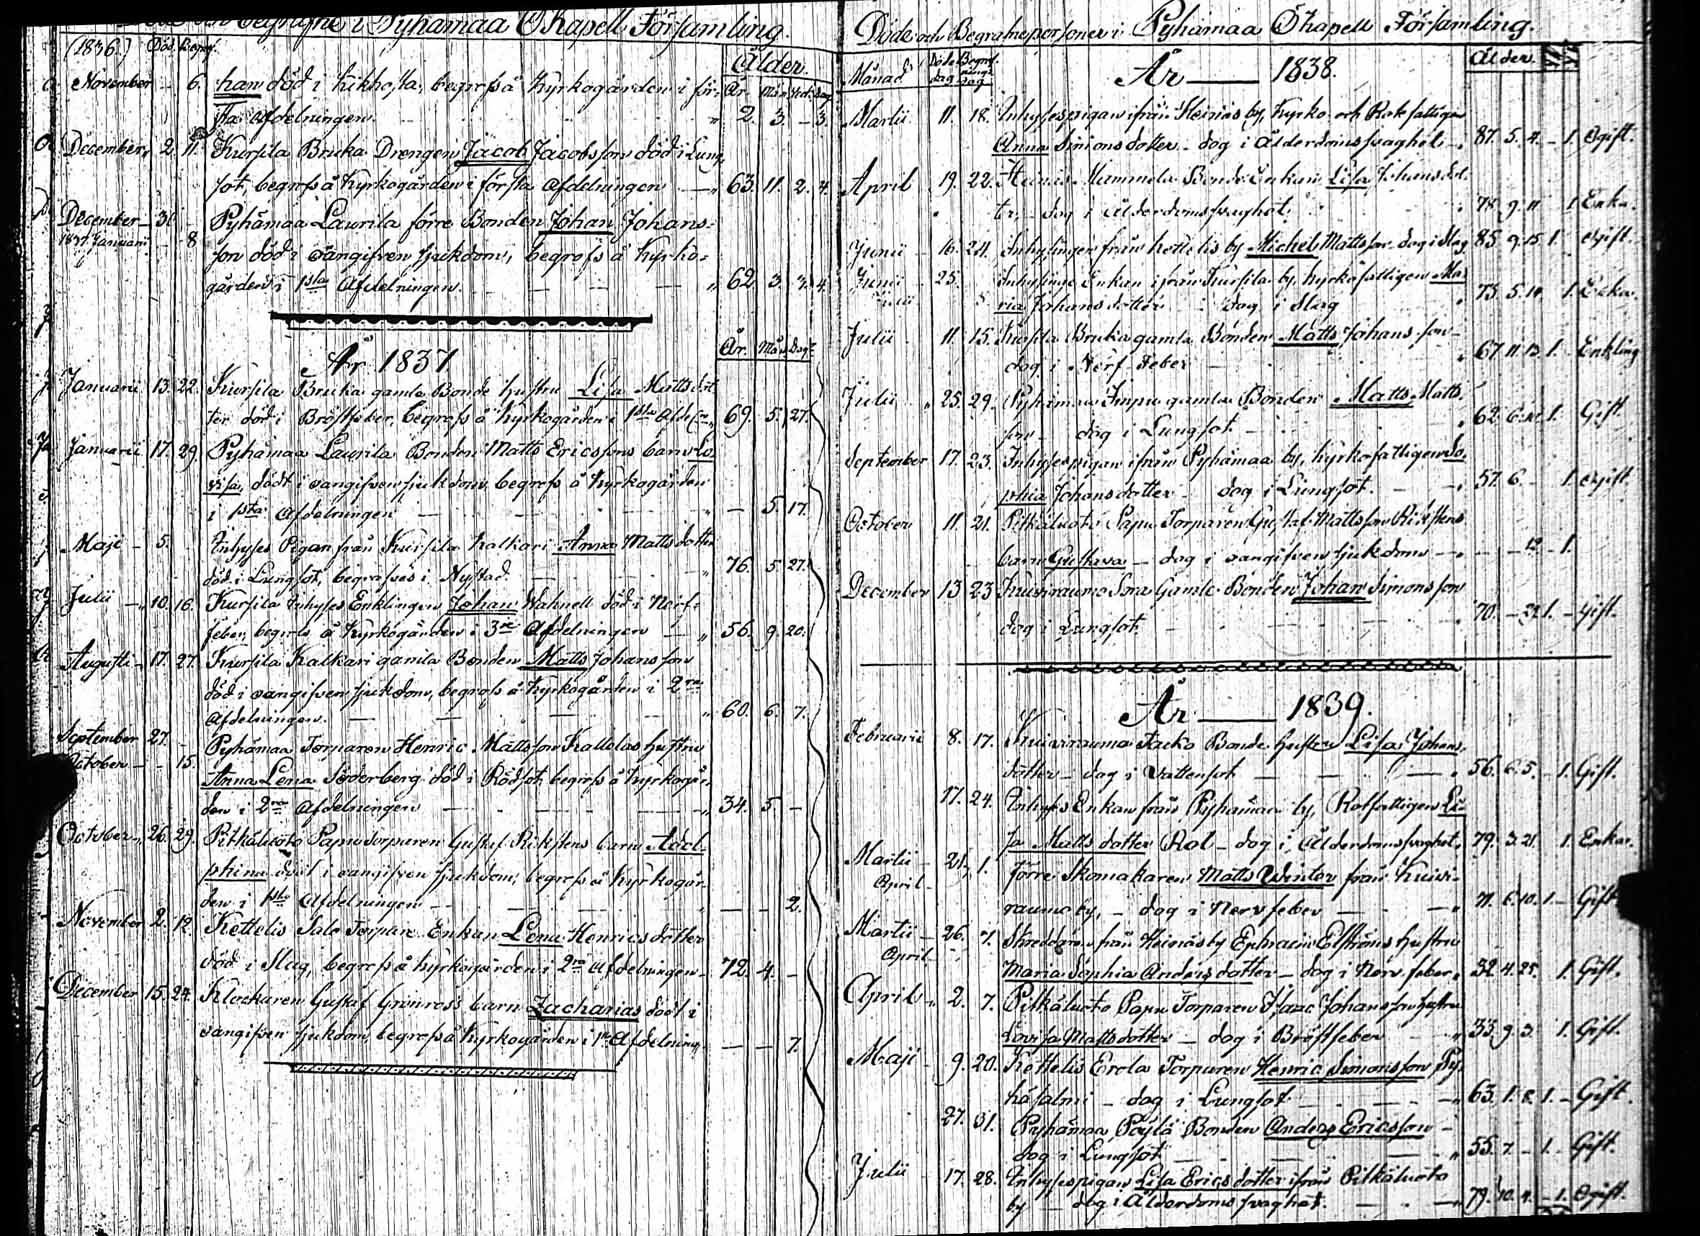 Döde och Begrafne i Pyhämaa Ö Kapell Församling.
(1836.) Död. Begrof. Ålder.
November — 6. han död i Kikhosta, begrofs å Kyrkogården i för- År. Mån. Ved. Dag
sta Afdelningen. 2. 3. – 3.
December, 2. 11. Kursila Bruka Drengen Jacob Jacobsson död i Lung-
sot, begrofs å Kyrkogården i första Afdelningen — 63. 11. 2. 4.
December — 31 Pyhämaa Laurila förre Bonden Johan Johans-
1837 Januari — 8 son död i oangifven sjukdom, begrofs å Kyrko-
gården i 1sta Afdelningen. 62. 3. 3. 4.
År 1837 År. Mån. Dag.
Januarii 13. 22. Kursila Bruka gamla Bonde hustru Lisa Mattsdot-
ter död i Bröstfeber, begrofs å Kyrkogården i 1sta Afd. 69. 5. 27.
Januarii 17. 29. Pyhämaa Laurila Bonden Matts Ericssons barn Lo-
visa, dödt i oangifven sjukdom, begrofs å Kyrkogården
i 1sta Afdelningen — 5. 17.
Maji — 5. Inhyses Pigan från Kursila Kalkari Anna Mattsdotter
död i Lungsot, begrafves i Nystad. 76. 5. 27.
Julii — 10. 16. Kursila Inhyses Enklingen Johan Wahnell död i Nerf-
feber, begrofs å Kyrkogården i 3ne Afdelningen — 56. 9. 20.
Augusti — 17. 27. Kursila Kalkari gamla Bonden Matts Johansson
död i oangifven sjukdom, begrofs å Kyrkogården i 2ra
Afdelningen. 60. 6. 7.
September 27. Pyhämaa Torparen Henric Mattsson Kattelas hustru
October — 15. Anna Lena Söderberg död i Rödsot, begrofs å Kyrkogår-
den i 2ra Afdelningen 34. 5. –
October — 26. 29. Pitkäluoto Papu Torparen Gustaf Rikstens barn Adol-
phina dödt i oangifven sjukdom, begrofs å Kyrkogår-
den i 1sta Afdelningen — — 2.
November 2. 12. Kettelis Salo Torpare Enkan Lena Henricsdotter
död i Slag, begrofs å Kyrkogården i 2ra Afdelningen 72. 4. –
December 15. 24. Klockaren Gustaf Grönross barn Zacharias dödt i
oangifven sjukdom, begrofs å Kyrkogården i 1sta Afdelning. — — 7.
Döde och Begrafne personer i Pyhämaa Ö Kapell Församling.
Månad Döde dag Begrafnings dag År — 1838. Ålder.
Martii 11. 18. Inhysespigan ifrån Heinäs by, Kyrko- och Rotefattigen
Anna Simonsdotter — dog i Ålderdomssvaghet 87. 5. 4. – 1. Ogift.
April 19. 22. Heinäs Mammela Bonde Enkan Lisa Johansdot-
ter — dog i Ålderdomssvaghet. 78. 9. 11 1. Enka.
Junii 16. 24. Inhysingen från Kettelis by Michel Mattsson dog i Slag 85. 9. 15. 1. Ogift.
Junii 25. Inhysings Enkan ifrån Kursila by, Kyrkofattigen Ma-
Julii ria Johansdotter — dog i Slag 73. 5. 14. 1. Enka.
Julii 11. 15. Kursila Bruka gamla Bonden Matts Johansson
dog i Nerf Feber 67. 11. 13. 1. Enkling
Julii 25. 29. Pyhämaa Impu gamla Bonden Matts Matts-
son — dog i Lungsot 62. 1. Gift.
September 17. 23. Inhysespigan ifrån Pyhämaa by, Kyrkofattigen So-
phia Johansdotter — dog i Lungsot. 57. 6. – 1. Ogift.
October 11. 21. Pitkäluoto Papu Torparen Gustaf Mattsson Rikstens
barn Gustava — dog i oangifven sjukdom — 12. – 1.
December 13. 23. Kuivirauma Sora Gamle Bonden Johan Simonsson
dog i Lungsot. 70. – 22. 1. – Gift.
År — 1839.
Februarii 8. 17. Kuivirauma Jacko Bonde Hustru Lisa Johans-
dotter — dog i Vattensot 56. 6. 5. – 1. Gift.
17. 24. Inhyses Enkan från Pyhämaa by, Rotfattigen Li-
sa Mattsdotter Rol — dog i Ålderdomssvaghet. 79. 3. 21. 1. Enka.
Martii 21.
April 1. Förre Skomakaren Matts Winter från Kuivi-
rauma by, — dog i Nervfeber 71. 6. 10. 1. Gift
Martii 26.
April 7. Skreddaren från Heinäs by Ephraim Elströms hustru
Maria Sophia Andersdotter — dog i Nerv feber. 32. 4. 25. 1. Gift.
April 2. 7. Pitkäluoto Papu Torparen Isaac Johansson hustru
Lovisa Mattsdotter — dog i Bröstfeber 33. 9. 3. 1. Gift.
Maji 9. 20. Kettelis Erola Torparen Henric Simonsson Py-
häsalmi — dog i Lungsot 63. 1. 8. 1. – Gift.
27. 31. Pyhämaa Päylä Bonden Anders Ericsson —
dog i Lungsot 55. 7. – 1. Gift.
Julii 17. 28. Inhysespigan Lisa Ericsdotter ifrån Pitkäluoto
by — dog i Ålderdomssvaghet. 79. 10. 4. – 1. Ogift.